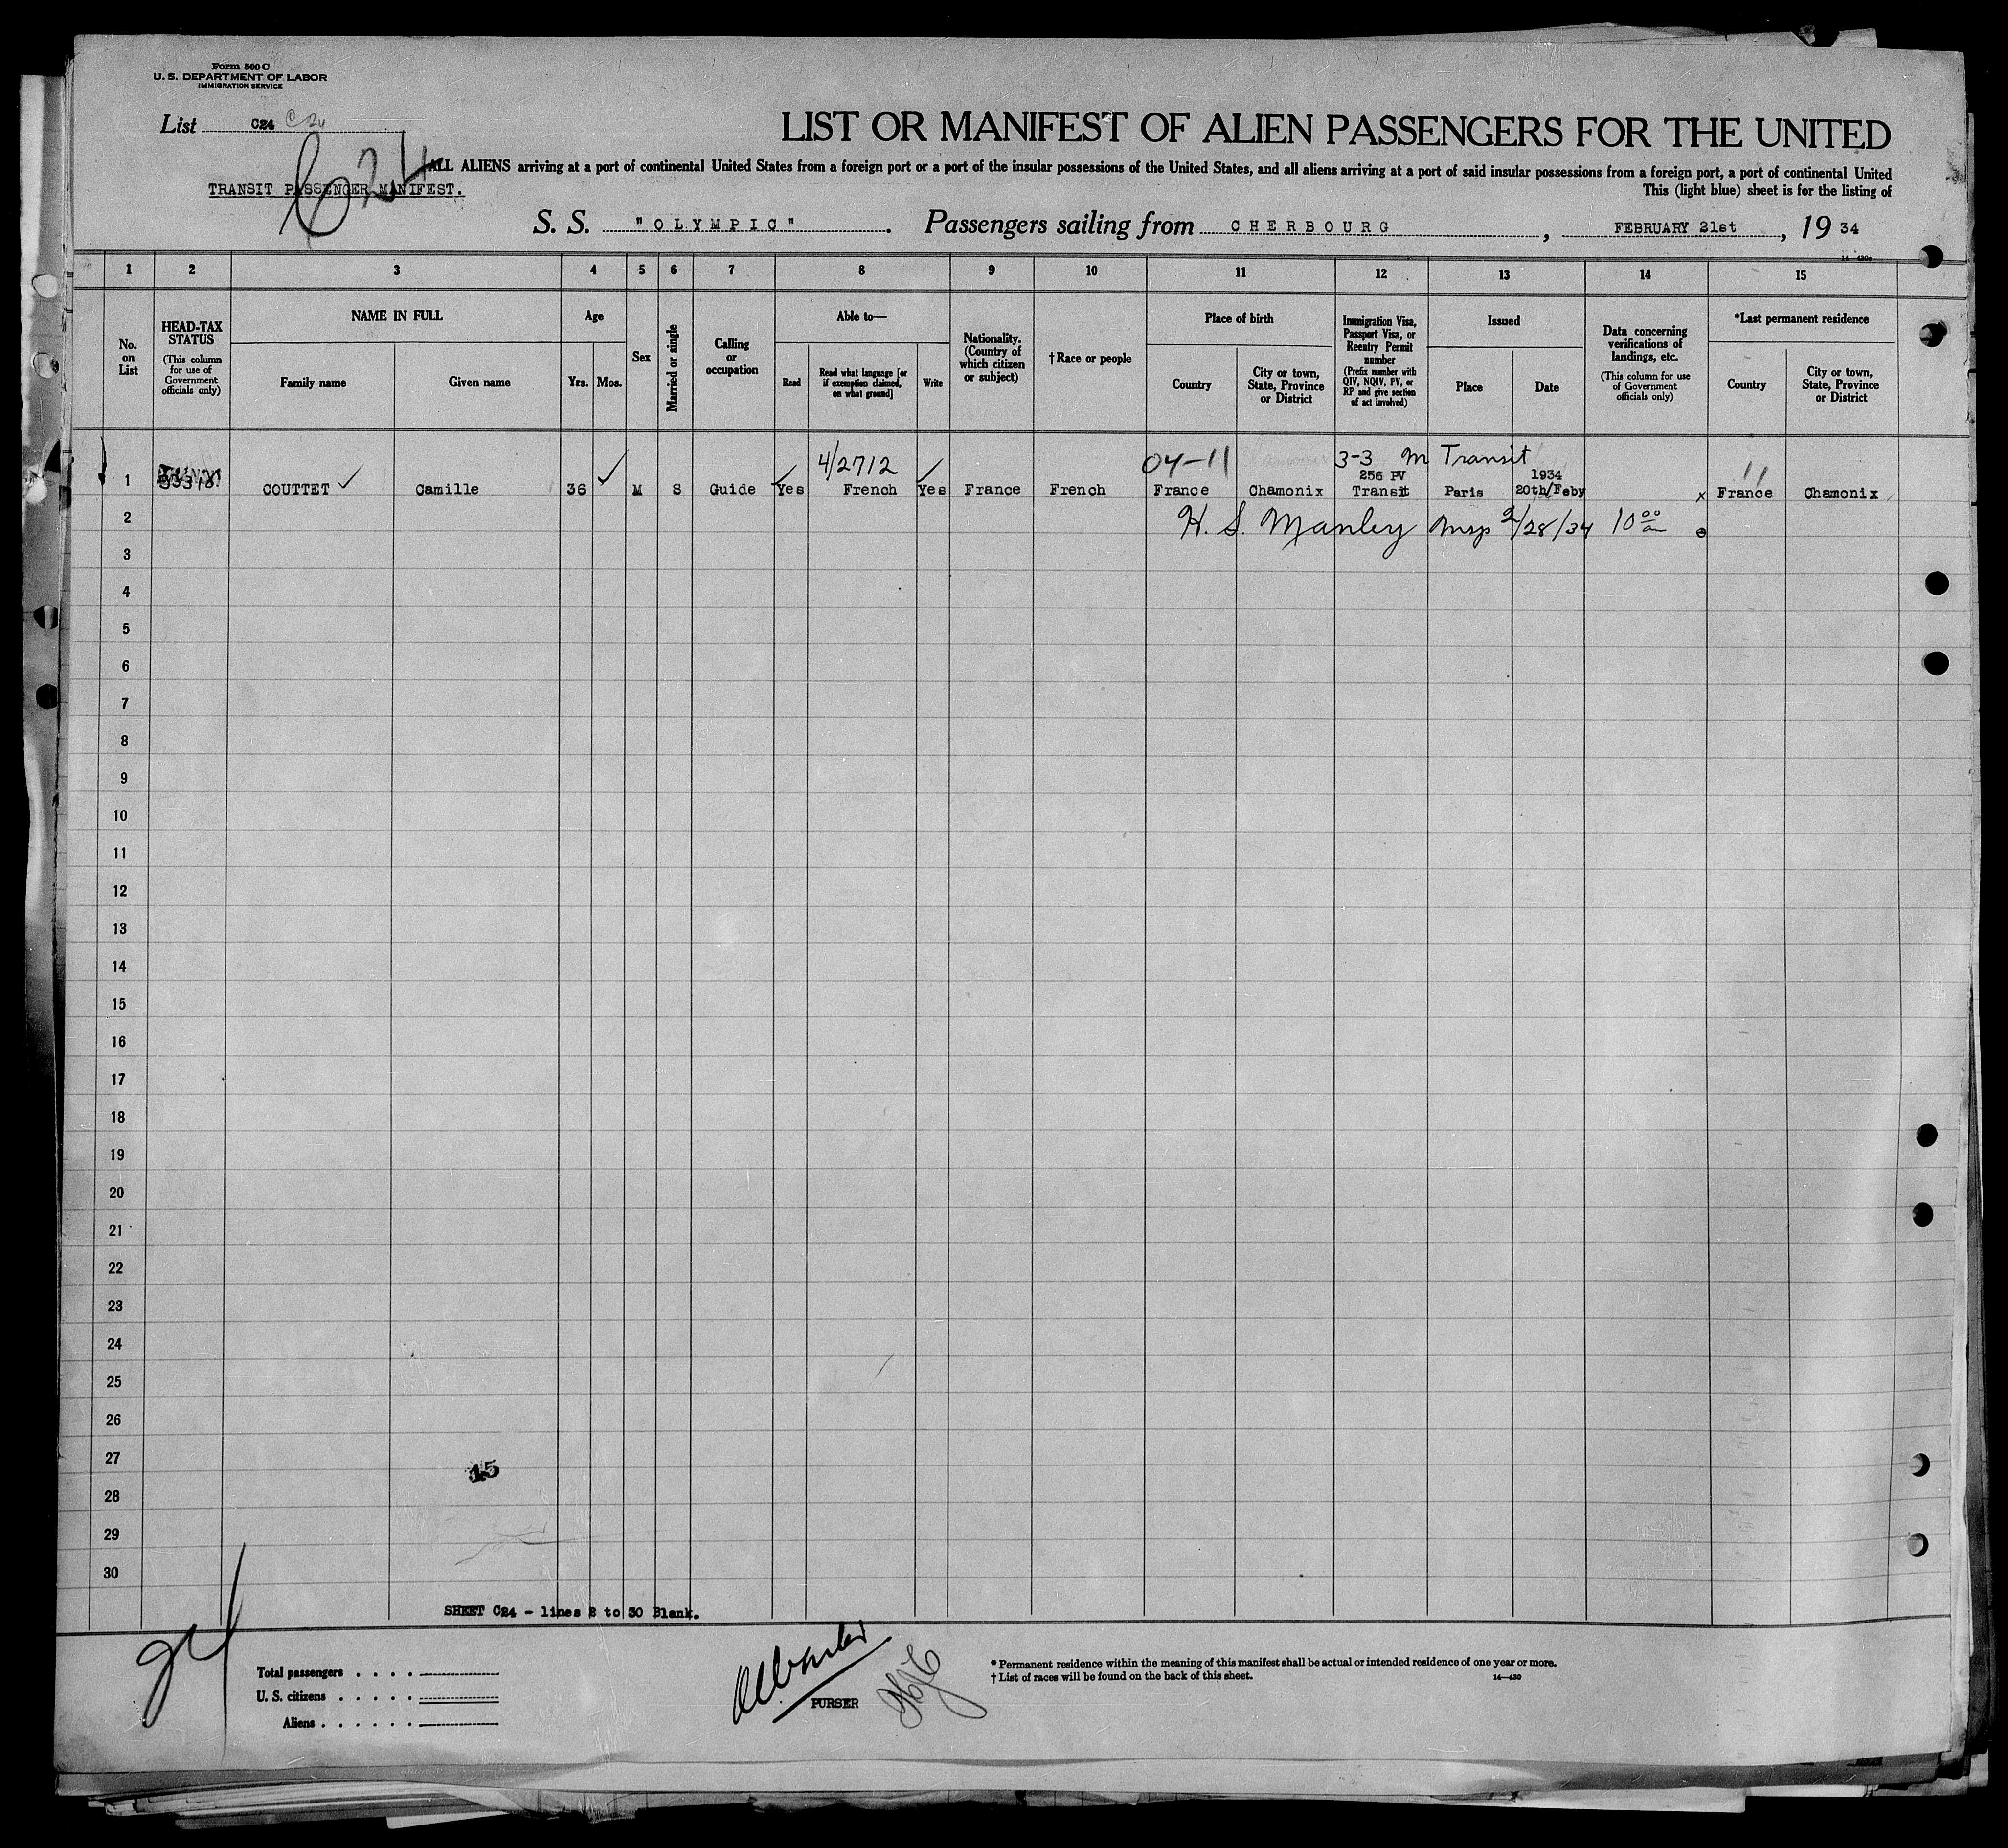 Form 500 C
U. S. DEPARTMENT OF LABOR
IMMIGRATION SERVICE
List C24 C 24
C 24
LIST OR MANIFEST OF ALIEN PASSENGERS FOR THE UNITED
ALL ALIENS arriving at a port of continental United States from a foreign port or a port of the insular possessions of the United States, and all aliens arriving at a port of said insular possessions from a foreign port, a port of continental United
TRANSIT PASSENGER MANIFEST.
This (light blue) sheet is for the listing of
S. S. "OLYMPIC". Passengers sailing from CHERBOURG, FEBRUARY 21st, 19 34
1 2 3 4 5 6 7 8 9 10 11 12 13 14 15
No. on List
HEAD-TAX STATUS
(This column for use of Government officials only)
NAME IN FULL
Family name
Given name
Age
Yrs. Mos.
Sex
Married or single
Calling or occupation
Able to—
Read
Read what language [or if exemption claimed, on what ground]
Write
Nationality. (Country of which citizen or subject)
†Race or people
Place of birth
Country
City or town, State, Province or District
Immigration Visa, Passport Visa, or Reentry Permit number
(Prefix number with QIV, NQIV, PV, or RP and give section of act involved)
Issued
Place
Date
Data concerning verifications of landings, etc.
(This column for use of Government officials only)
*Last permanent residence
Country
City or town, State, Province or District
4/2712 04-11 3-3 M Transit 11
256 PV 1934
1 COUTTET Camille 36 M S Guide Yes French Yes France French France Chamonix Transit Paris 20th/Feby x France Chamonix
2 H. S. Manley Insp 2/28/34 10 00 am
3
4
5
6
7
8
9
10
11
12
13
14
15
16
17
18
19
20
21
22
23
24
25
26
27
15
28
29
30
SHEET C24 - lines 2 to 30 Blank.
Total passengers
U. S. citizens
Aliens
PURSER
* Permanent residence within the meaning of this manifest shall be actual or intended residence of one year or more.
† List of races will be found on the back of this sheet.
14—430